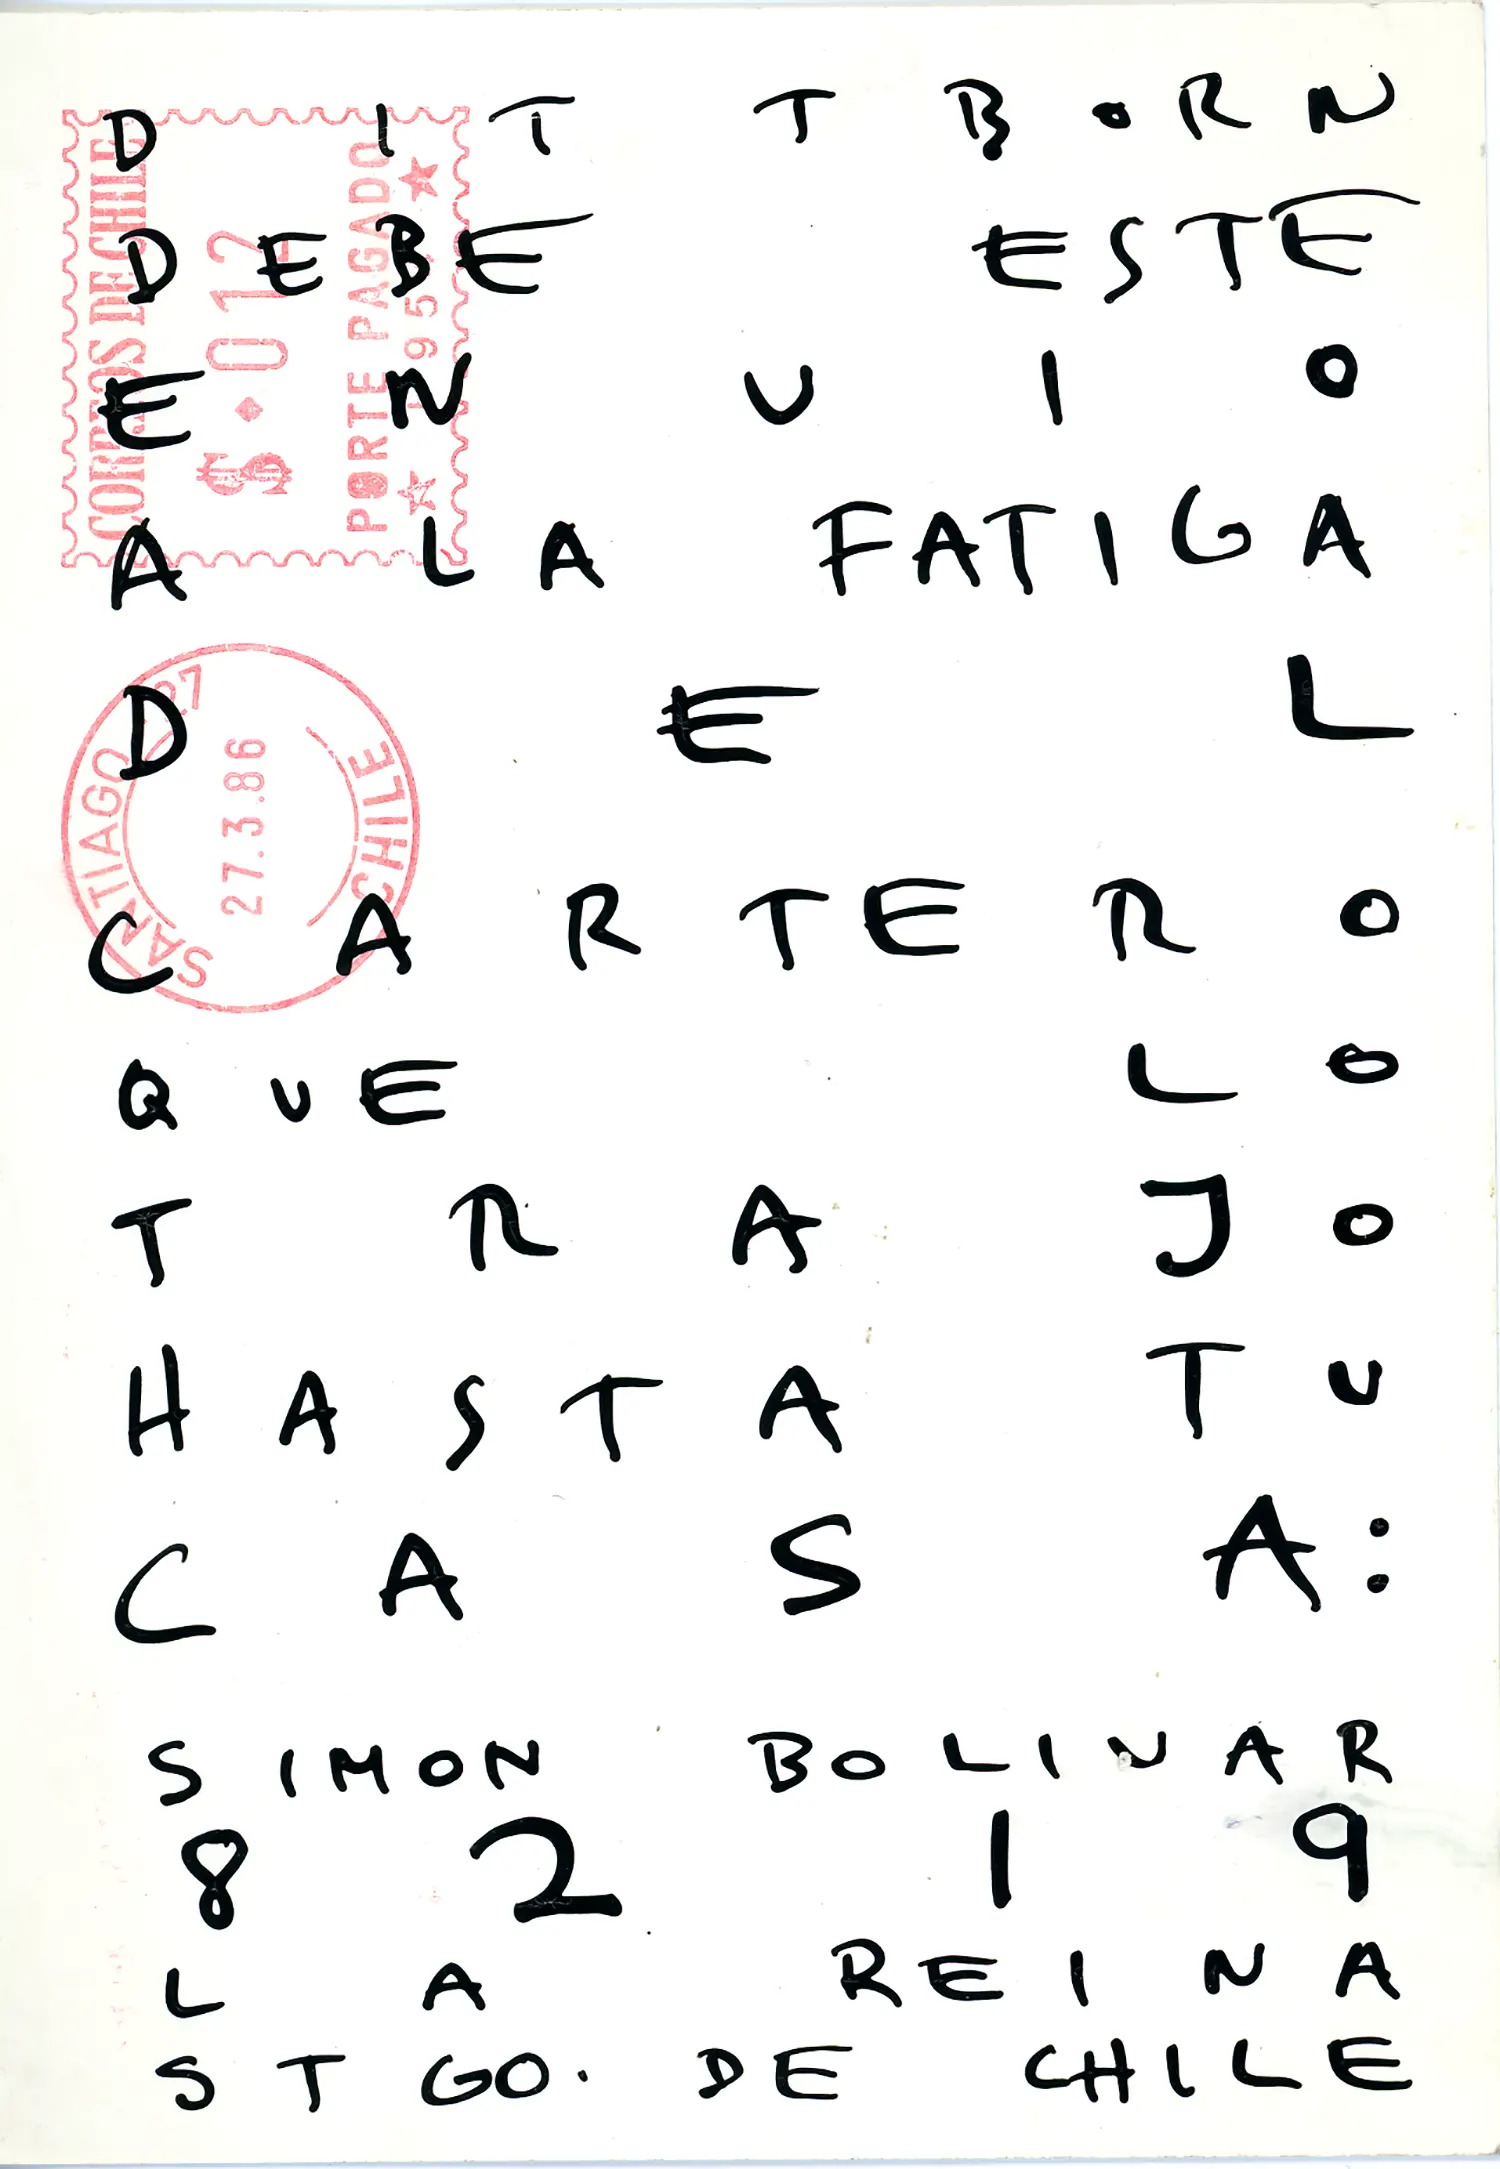 DITTBORN
DEBE ESTE
ENVIO
A LA FATIGA
DEL
CARTERO
QUE LO
TRAJO
HASTA TU
CASA:
SIMON BOLIVAR
8219
LA REINA
STGO. DE CHILE
CORREOS DE CHILE
$ 012
PORTE PAGADO
195
SANTIAGO 27
27.3.86
CHILE